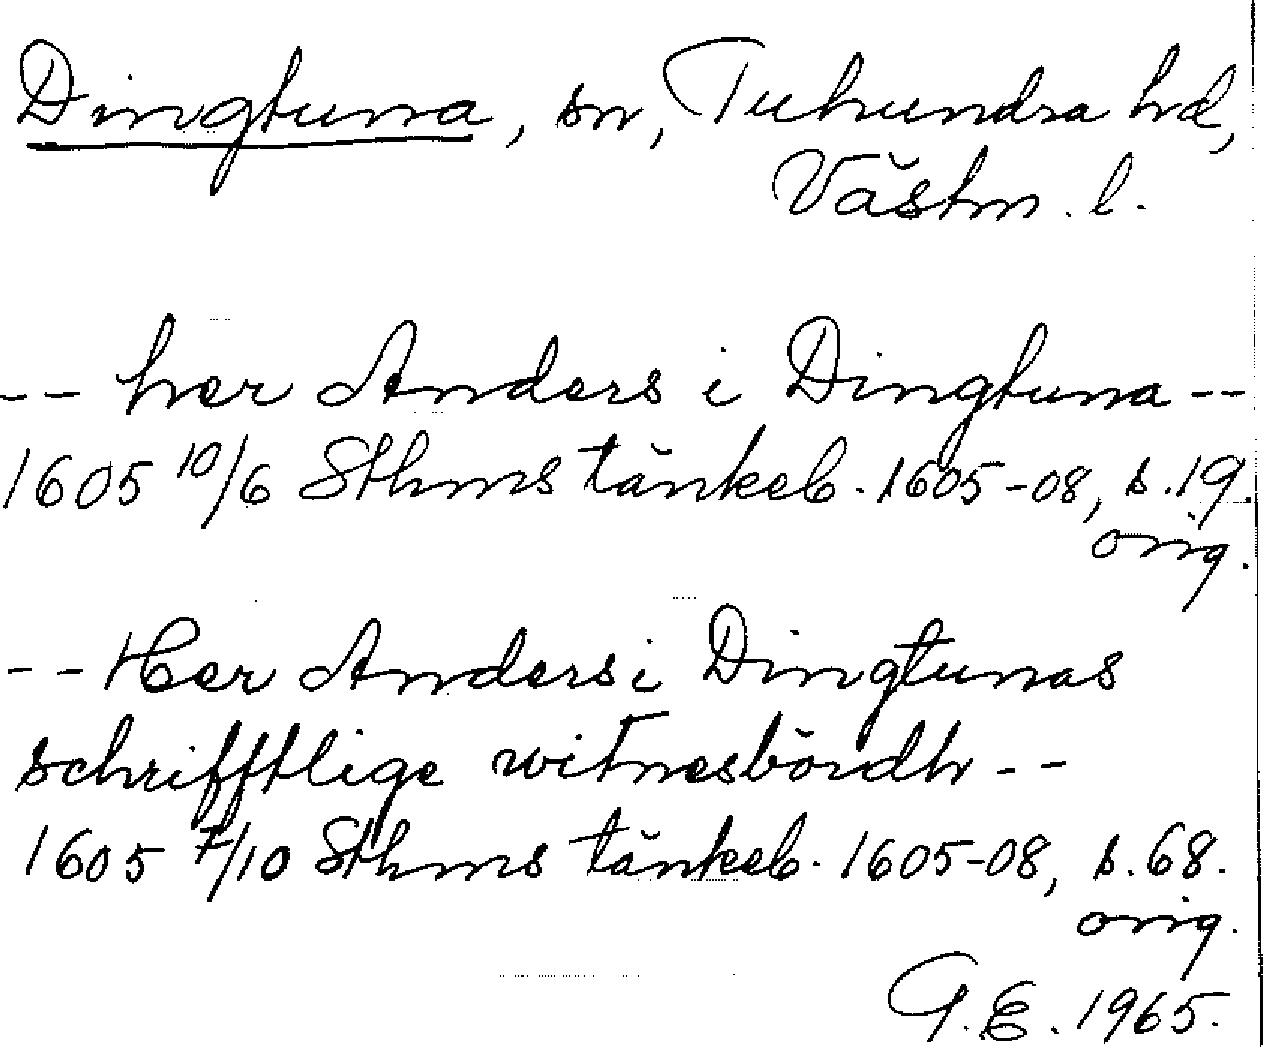 Dingtuna, sn, Tuhundra hd,
Västm. l.
-- her Anders i Dingtuna --
1605 10/6 Sthms tänkeb. 1605-08, s. 19.
orig.
-- Her Anders i Dingtunas
schrifftlige witnesbördh --
1605 7/10 Sthms tänkeb. 1605-08, s. 68.
orig.
G.E. 1965.